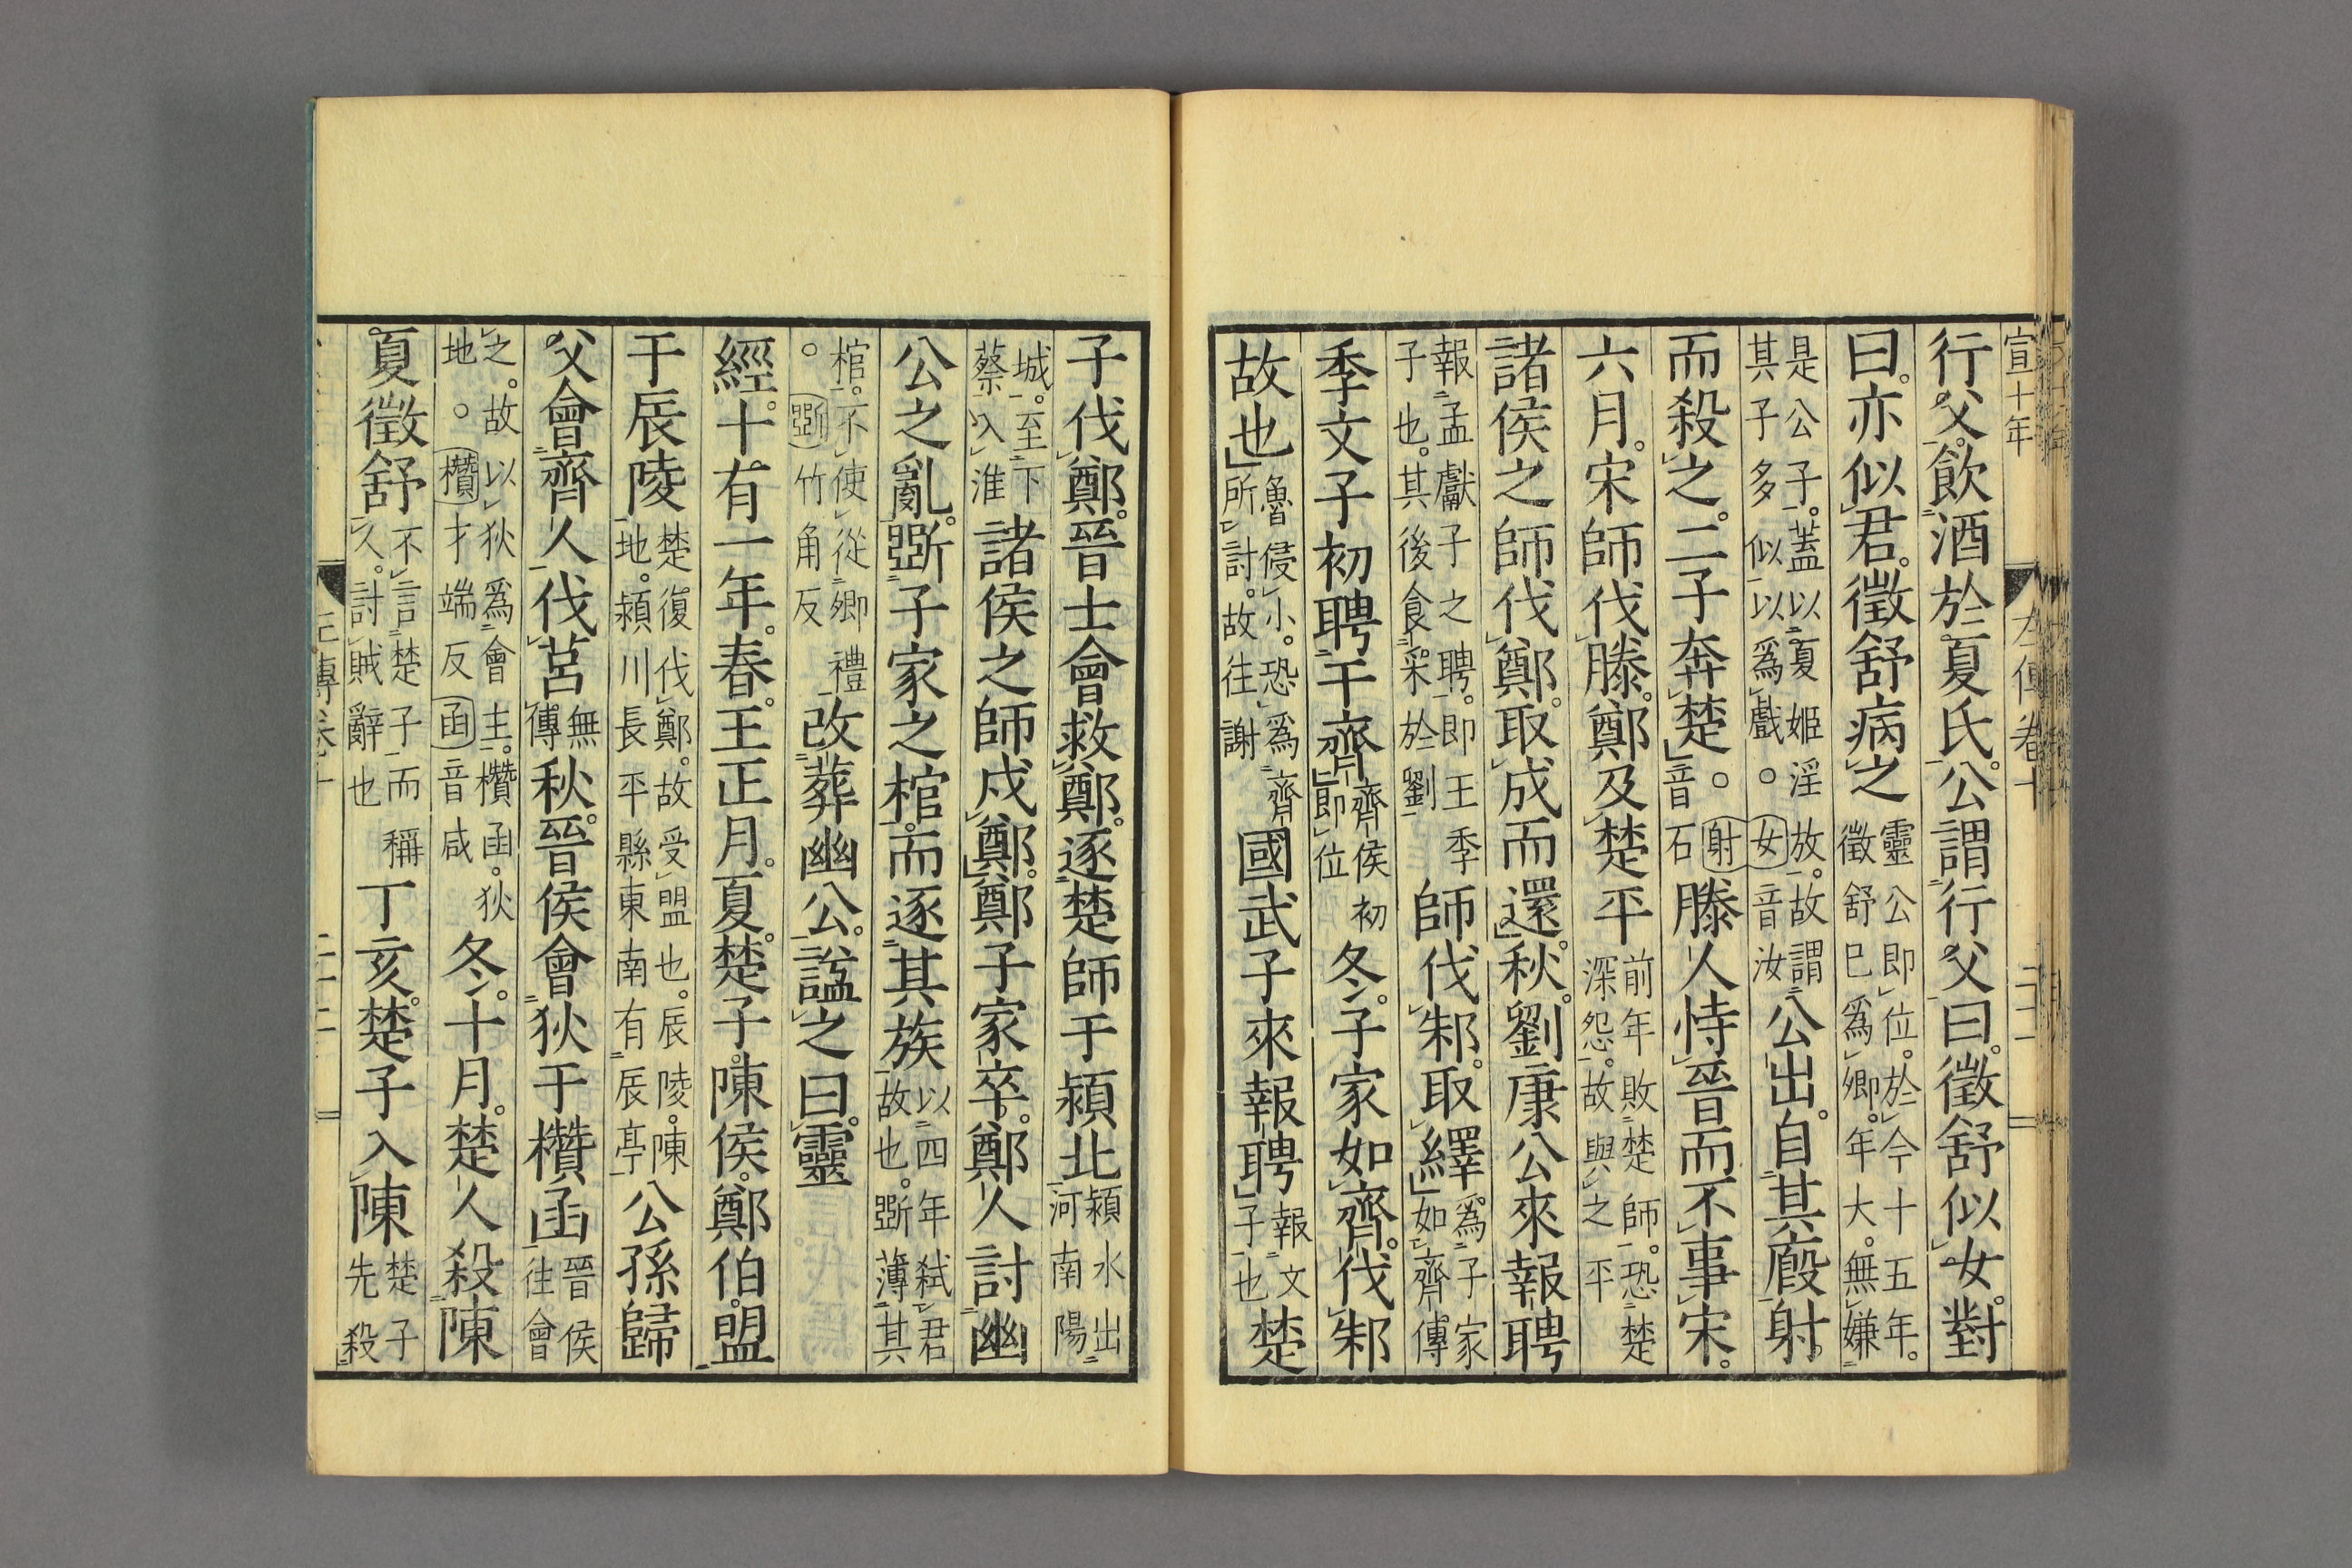 宣十年
左傳卷十
二十二
行父飲酒於夏氏。公謂行父曰。徵舒似女。對
曰。亦似君。徵舒病之靈公即位。於今十五年。徵舒已爲卿。年大。無嫌
是公子。蓋以夏姬淫放。故謂其子多似以爲戲。女音汝公出。自其廄射
而殺之。二子奔楚。射音石滕人恃晉而不事宋。
六月。宋師伐滕。鄭及楚平前年敗楚師。恐楚深怨。故與之平
諸侯之師伐鄭。取成而還。秋。劉康公來報聘
報孟獻子之聘。即王季子也。其後食采於劉師伐邾。取繹爲子家如齊傳
季文子初聘于齊齊侯初即位冬。子家如齊。伐邾
故也魯侵小。恐爲齊所討。故往謝國武子來報聘報文子也楚
子伐鄭。晉士會救鄭。逐楚師于潁北潁水出河南陽
城。至下蔡入淮諸侯之師戍鄭。鄭子家卒。鄭人討幽
公之亂。斲子家之棺。而逐其族以四年弒君故也。斲薄其
棺。不使從卿禮。斲竹角反改葬幽公。謚之曰。靈
經。十有一年。春。王正月。夏。楚子。陳侯。鄭伯。盟
于辰陵楚復伐鄭。故受盟也。辰陵。陳地。潁川長平縣東南有辰亭公孫歸
父會齊人伐莒無傳秋。晉侯會狄于欑函晉侯往會
之。故以狄爲會主。欑函。狄地。欑才端反函音咸冬。十月。楚人殺陳
夏徵舒不言楚子而稱人。討賊辭也丁亥。楚子入陳楚子先殺